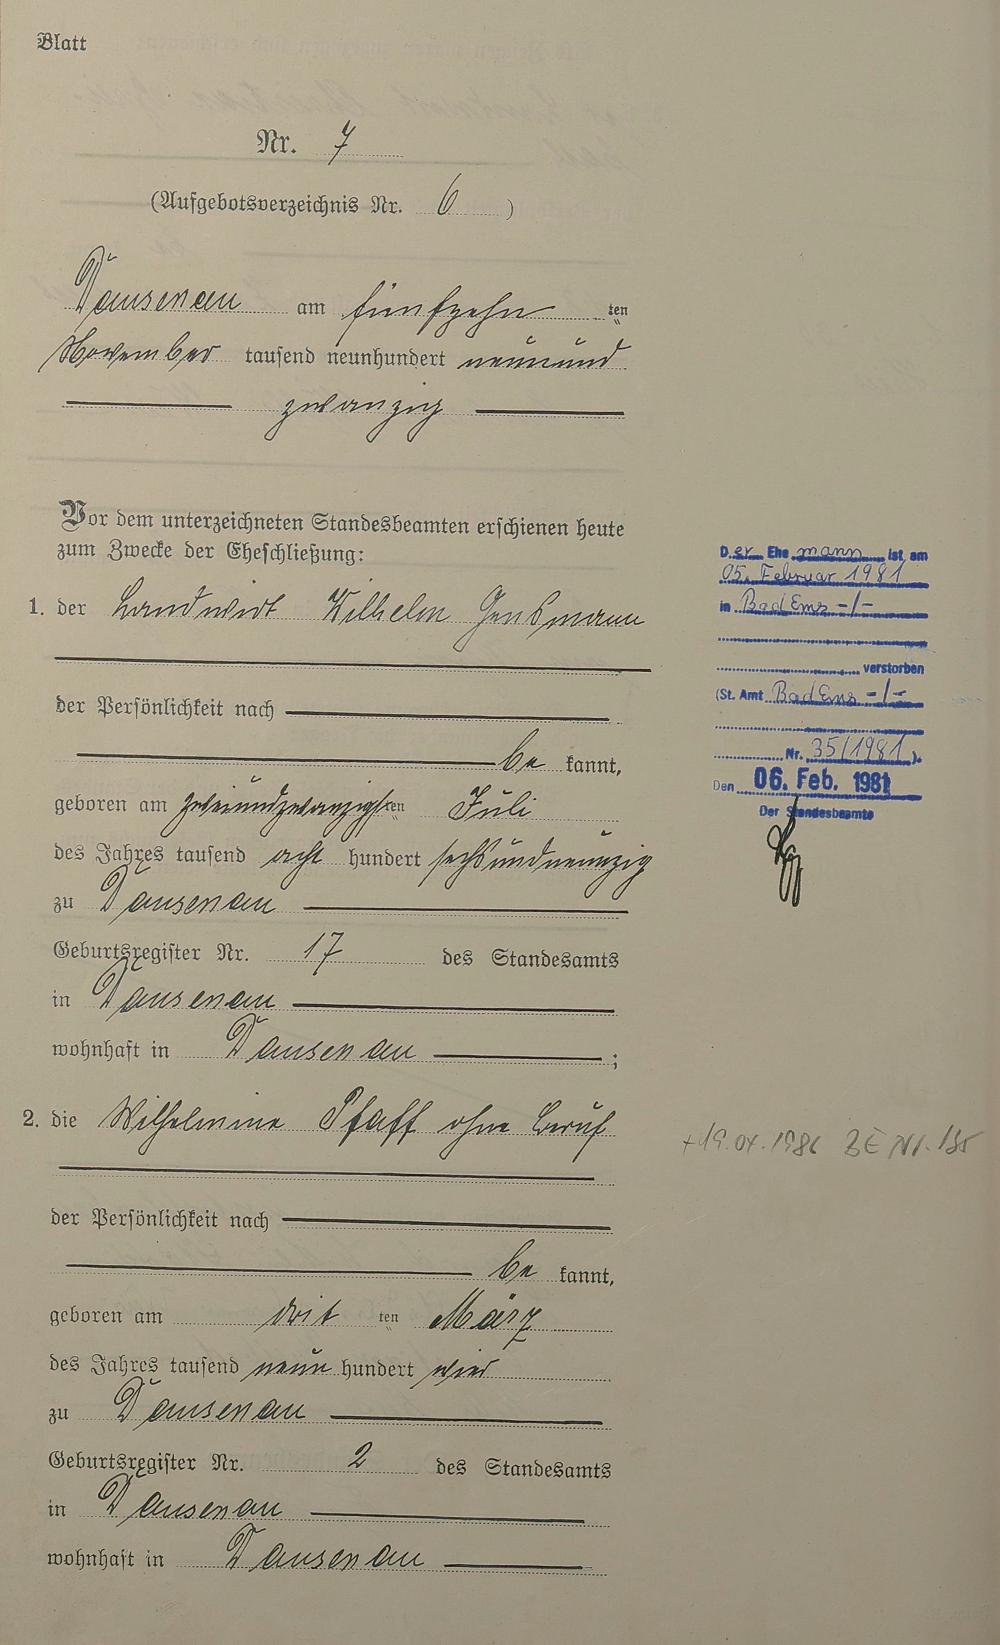 Blatt
Nr. 7
(Aufgebotsverzeichnis Nr. 6)
Dausenau am fünfzehn ten
November tausend neunhundert neunund
zwanzig
Vor dem unterzeichneten Standesbeamten erschienen heute
zum Zwecke der Eheschließung:
1. der Landwirt Wilhelm Gensmann
der Persönlichkeit nach
be kannt,
geboren am zweiundzwanzigsten Juli
des Jahres tausend acht hundert sechsundneunzig
zu Dausenau
Geburtsregister Nr. 17 des Standesamts
in Dausenau
wohnhaft in Dausenau ;
2. die Wilhelmine Pfaff ohne Beruf
der Persönlichkeit nach
be kannt,
geboren am drit ten März
des Jahres tausend neun hundert vier
zu Dausenau
Geburtsregister Nr. 2 des Standesamts
in Dausenau
wohnhaft in Dausenau
Der Ehe mann ist am
05. Februar 1981
in Bad Ems -/-
verstorben
(St. Amt Bad Ems -/-
Nr. 35/1981).
Den 06. Feb. 1981
Der Standesbeamte
+19.04.1986 BE Nr. 135